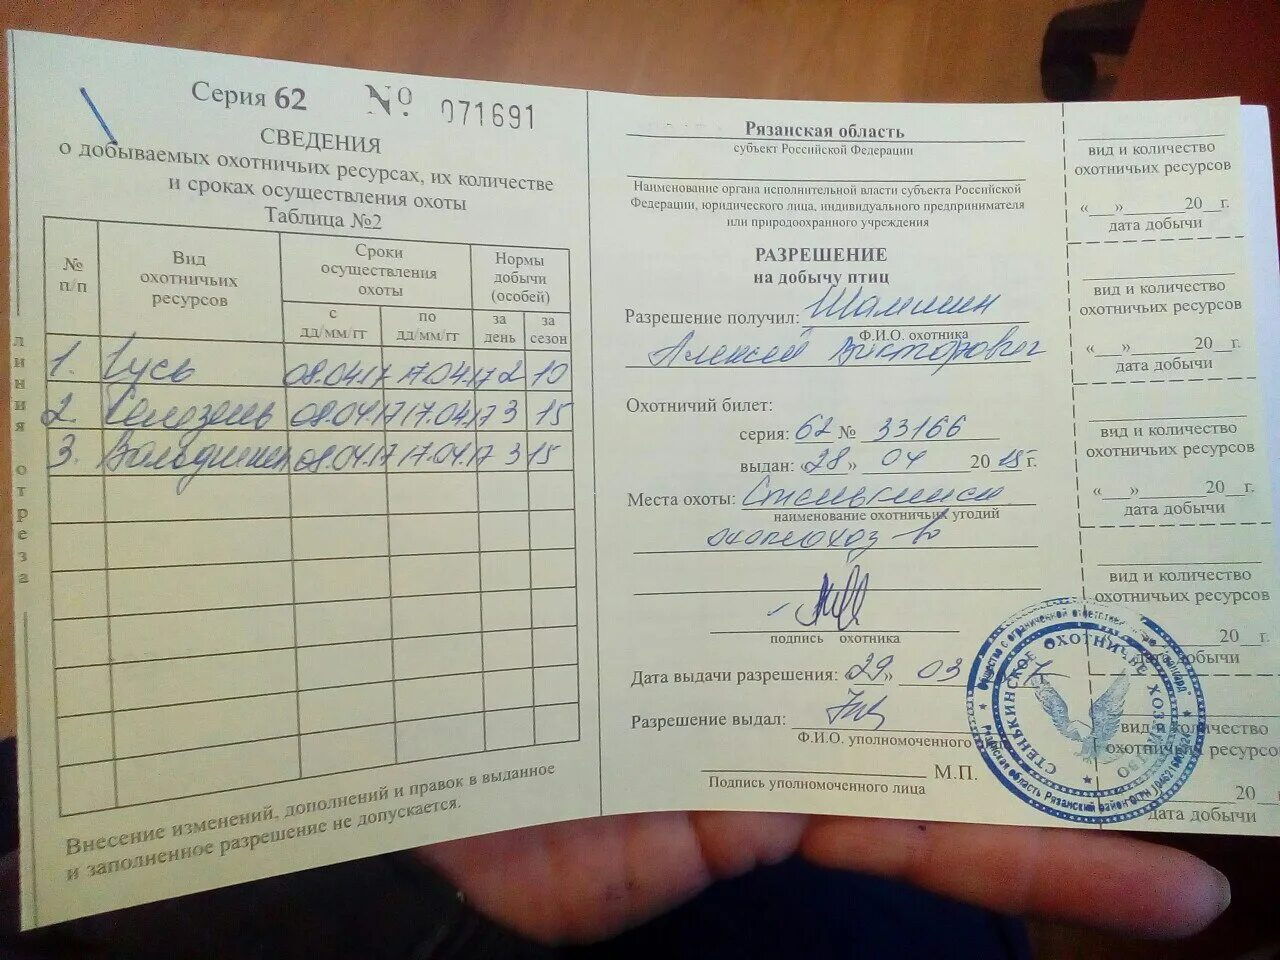 Серия 62 № 071691
СВЕДЕНИЯ
о добываемых охотничьих ресурсах, их количестве
и сроках осуществления охоты
Таблица №2
№ п/п
Вид охотничьих ресурсов
Сроки осуществления охоты
Нормы добычи (особей)
с дд/мм/гг
по дд/мм/гг
за день
за сезон
1. Гусь 08.04.17 17.04.17 2 10
2. Селезень 08.04.17 17.04.17 3 15
3. Вальдшнеп 08.04.17 17.04.17 3 15
Внесение изменений, дополнений и правок в выданное
и заполненное разрешение не допускается.
линия отреза
Рязанская область
субъект Российской Федерации
Наименование органа исполнительной власти субъекта Российской
Федерации, юридического лица, индивидуального предпринимателя
или природоохранного учреждения
РАЗРЕШЕНИЕ
на добычу птиц
Разрешение получил:
Ф.И.О. охотника
Алексей Викторович
Охотничий билет:
серия: 62 № 33166
выдан: «28» 04 2015 г.
Места охоты:
наименование охотничьих угодий
охотхоз во
подпись охотника
Дата выдачи разрешения: «29» 03 17
Разрешение выдал:
Ф.И.О. уполномоченного
М.П.
Подпись уполномоченного лица
СТЕНЬКИНСКОЕ ОХОТНИЧЬЕ ХОЗЯЙСТВО
Общество с ограниченной ответственностью
Рязанская область Рязанский район ОГРН
вид и количество
охотничьих ресурсов
«___»______20__г.
дата добычи
вид и количество
охотничьих ресурсов
«___»______20__г.
дата добычи
вид и количество
охотничьих ресурсов
«___»______20__г.
дата добычи
вид и количество
охотничьих ресурсов
20__г.
дата добычи
вид и количество
охотничьих ресурсо
20
дата добычи